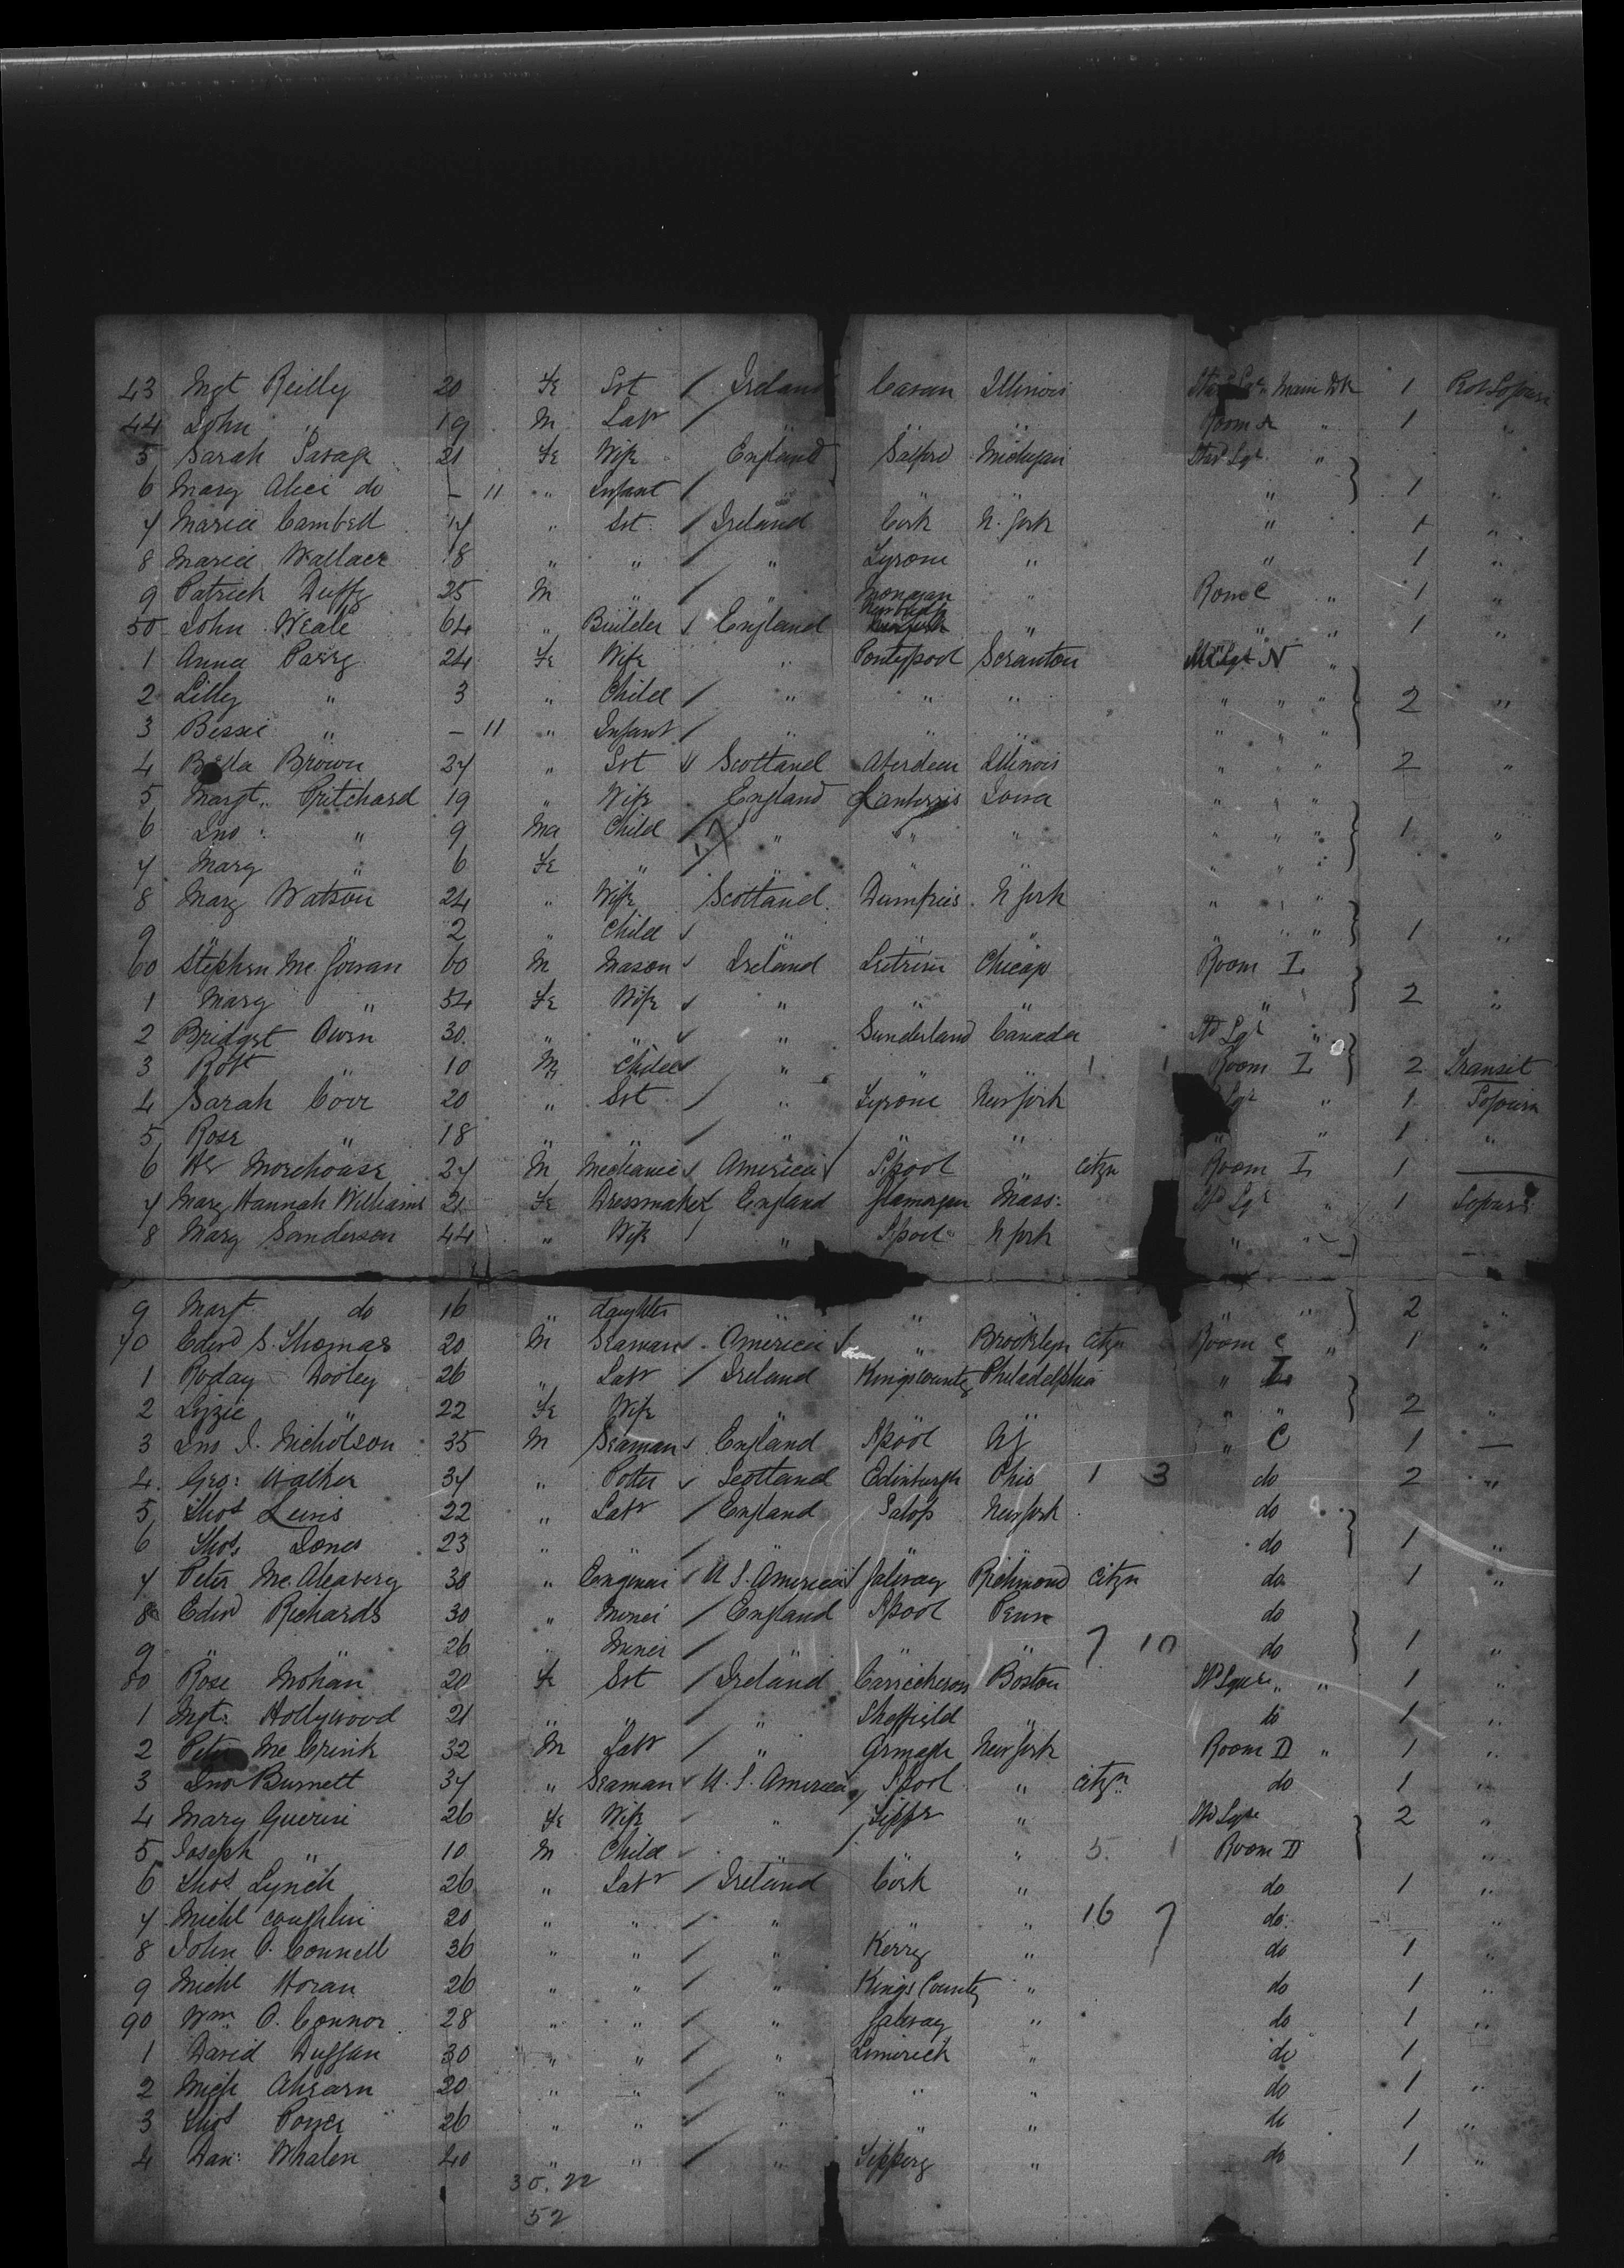 43 Mgt Reilly 20 Fe Svt / Ireland Cavan Illinois Main Dk 1
44 John " 19 M Labr / " " " Room A " 1 "
5 Sarah Savage 21 Fe Wife England Salford Michigan "
6 Mary Alice do - 11 " Infant / " " " " 1 "
7 Maria Cambell 17 " Svt / Ireland Cork N. York " 1 "
8 Maria Wallace 18 " " / " Tyrone " " 1 "
9 Patrick Duffy 25 M " / " Monagan " Room C " 1 "
50 John Weale 64 " Builder / England " " " 1 "
1 Anna Parry 24 Fe Wife " Pontypool Scranton N "
2 Lilly " 3 " Child / " " " " " " 2 "
3 Bessie " - 11 " Infant / " " " " " "
4 Bella Brown 27 " Svt Scotland Aberdeen Illinois " " " 2 "
5 Margt. Pritchard 19 " Wife England Iowa " " "
6 Jno " 9 Ma Child / " " " " " " 1 "
7 Mary " 6 Fe " / " " " " " "
8 Mary Watson 24 " Wife Scotland Dumfries N York " " "
9 " " 2 " Child " " " " " " 1 "
60 Stephen Mc Gowan 60 M Mason Ireland Leitrim Chicago Room I
1 Mary " 54 Fe Wife " " " " 2 "
2 Bridget Owen 30 " " " Sunderland Canada "
3 Robt " 10 M Child " " " 1 1 Room I 2 Transit
4 Sarah Corr 20 " Svt / " Tyrone New York " 1 Sojourn
5 Rose " 18 " " / " " " " " 1 "
6 Morehouse 27 M Mechanic America / Lpool " Citzn Room I 1 —
7 Mary Hannah Williams 21 Fe Dressmaker England Glamorgan Mass: " 1
8 Mary Sanderson 44 " Wife / " Lpool N York " "
9 Margt do 16 " daughter " " " " " 2 "
70 Edwd S. Thomas 20 M Seaman America " Brooklyn Citzn Room C " 1 "
1 Roday Dooley 26 " Labr / Ireland Kings County Philadelphia " I
2 Lizzie " 22 Fe Wife " " " " " 2 "
3 Jno J. Nicholson 35 M Seaman England Lpool NY " C 1 —
4 Geo: Walker 37 " Potter Scotland Edinburgh Ohio 1 3 do 2 "
5 Thos Lewis 22 " Labr / England Salop New York do
6 Thos Jones 23 " " / " " " do 1 "
7 Peter Mc Aleavery 38 " Engineer U S. America Galway Richmond Citzn do 1 "
8 Edwd Richards 30 " Miner / England Lpool Penn do
9 " " 26 " Miner / " " " 7 10 do 1 "
80 Rose Mohan 20 Fe Svt / Ireland Boston " " 1 "
1 Mgt: Hollywood 21 " " / " Sheffield " do 1 "
2 Peter Mc Crink 32 M Labr / " Armagh New York Room D " 1 "
3 Jno Burnett 37 " Seaman U. S. America Lpool " Citzn do 1 "
4 Mary Guerin 26 Fe Wife " " 2 "
5 Joseph " 10 M Child " 5 1 Room D "
6 Thos Lynch 26 " Labr / Ireland Cork " do 1 "
7 Michl Coughlin 20 " " / " " " 16 7 do "
8 John O. Connell 36 " " / " Kerry " do 1 "
9 Michl Horan 26 " " / " Kings County " do 1 "
90 Wm. O. Connor 28 " " / " Galway " do 1 "
1 David Duggan 30 " " / " Limerick " do 1
2 Mich Ahearn 20 " " / " " " do 1 "
3 Thos Power 26 " " / " " " do 1 "
4 Dan: Whalen 40 " " / " " do 1 "
30. 22
52